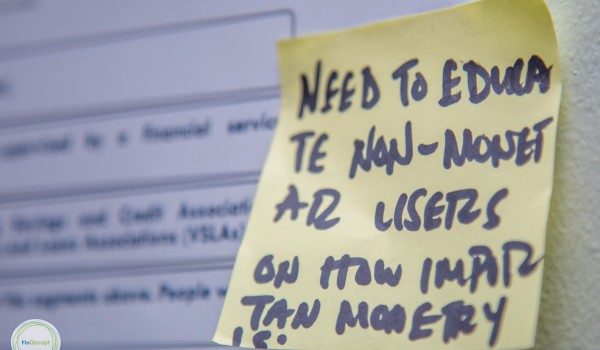 supervised by a financial servic
Savings and Credit Associati
and Loan Associations (VSLAs)
segments above. People w
NEED TO EDUCA
TE NON-MONET
AR USERS
ON HOW IMPOR
TAN MONETRY
IS:
FinDisrupt